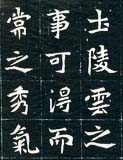 士陵雲之
事可得而
常之秀氣